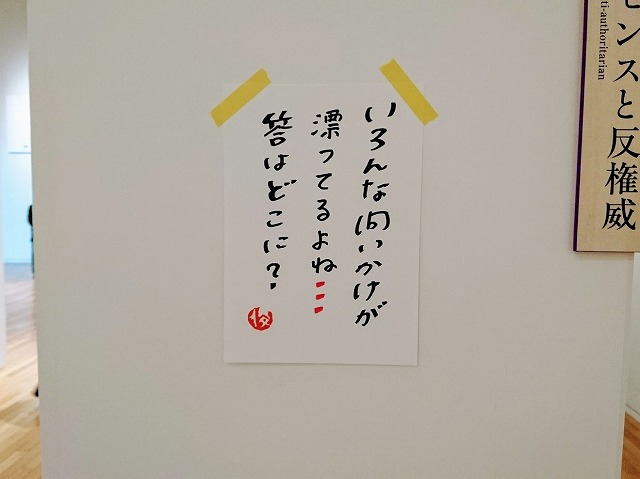 いろんな問いかけが
漂ってるよね…
答はどこに?
センスと反権威
ti-authoritarian